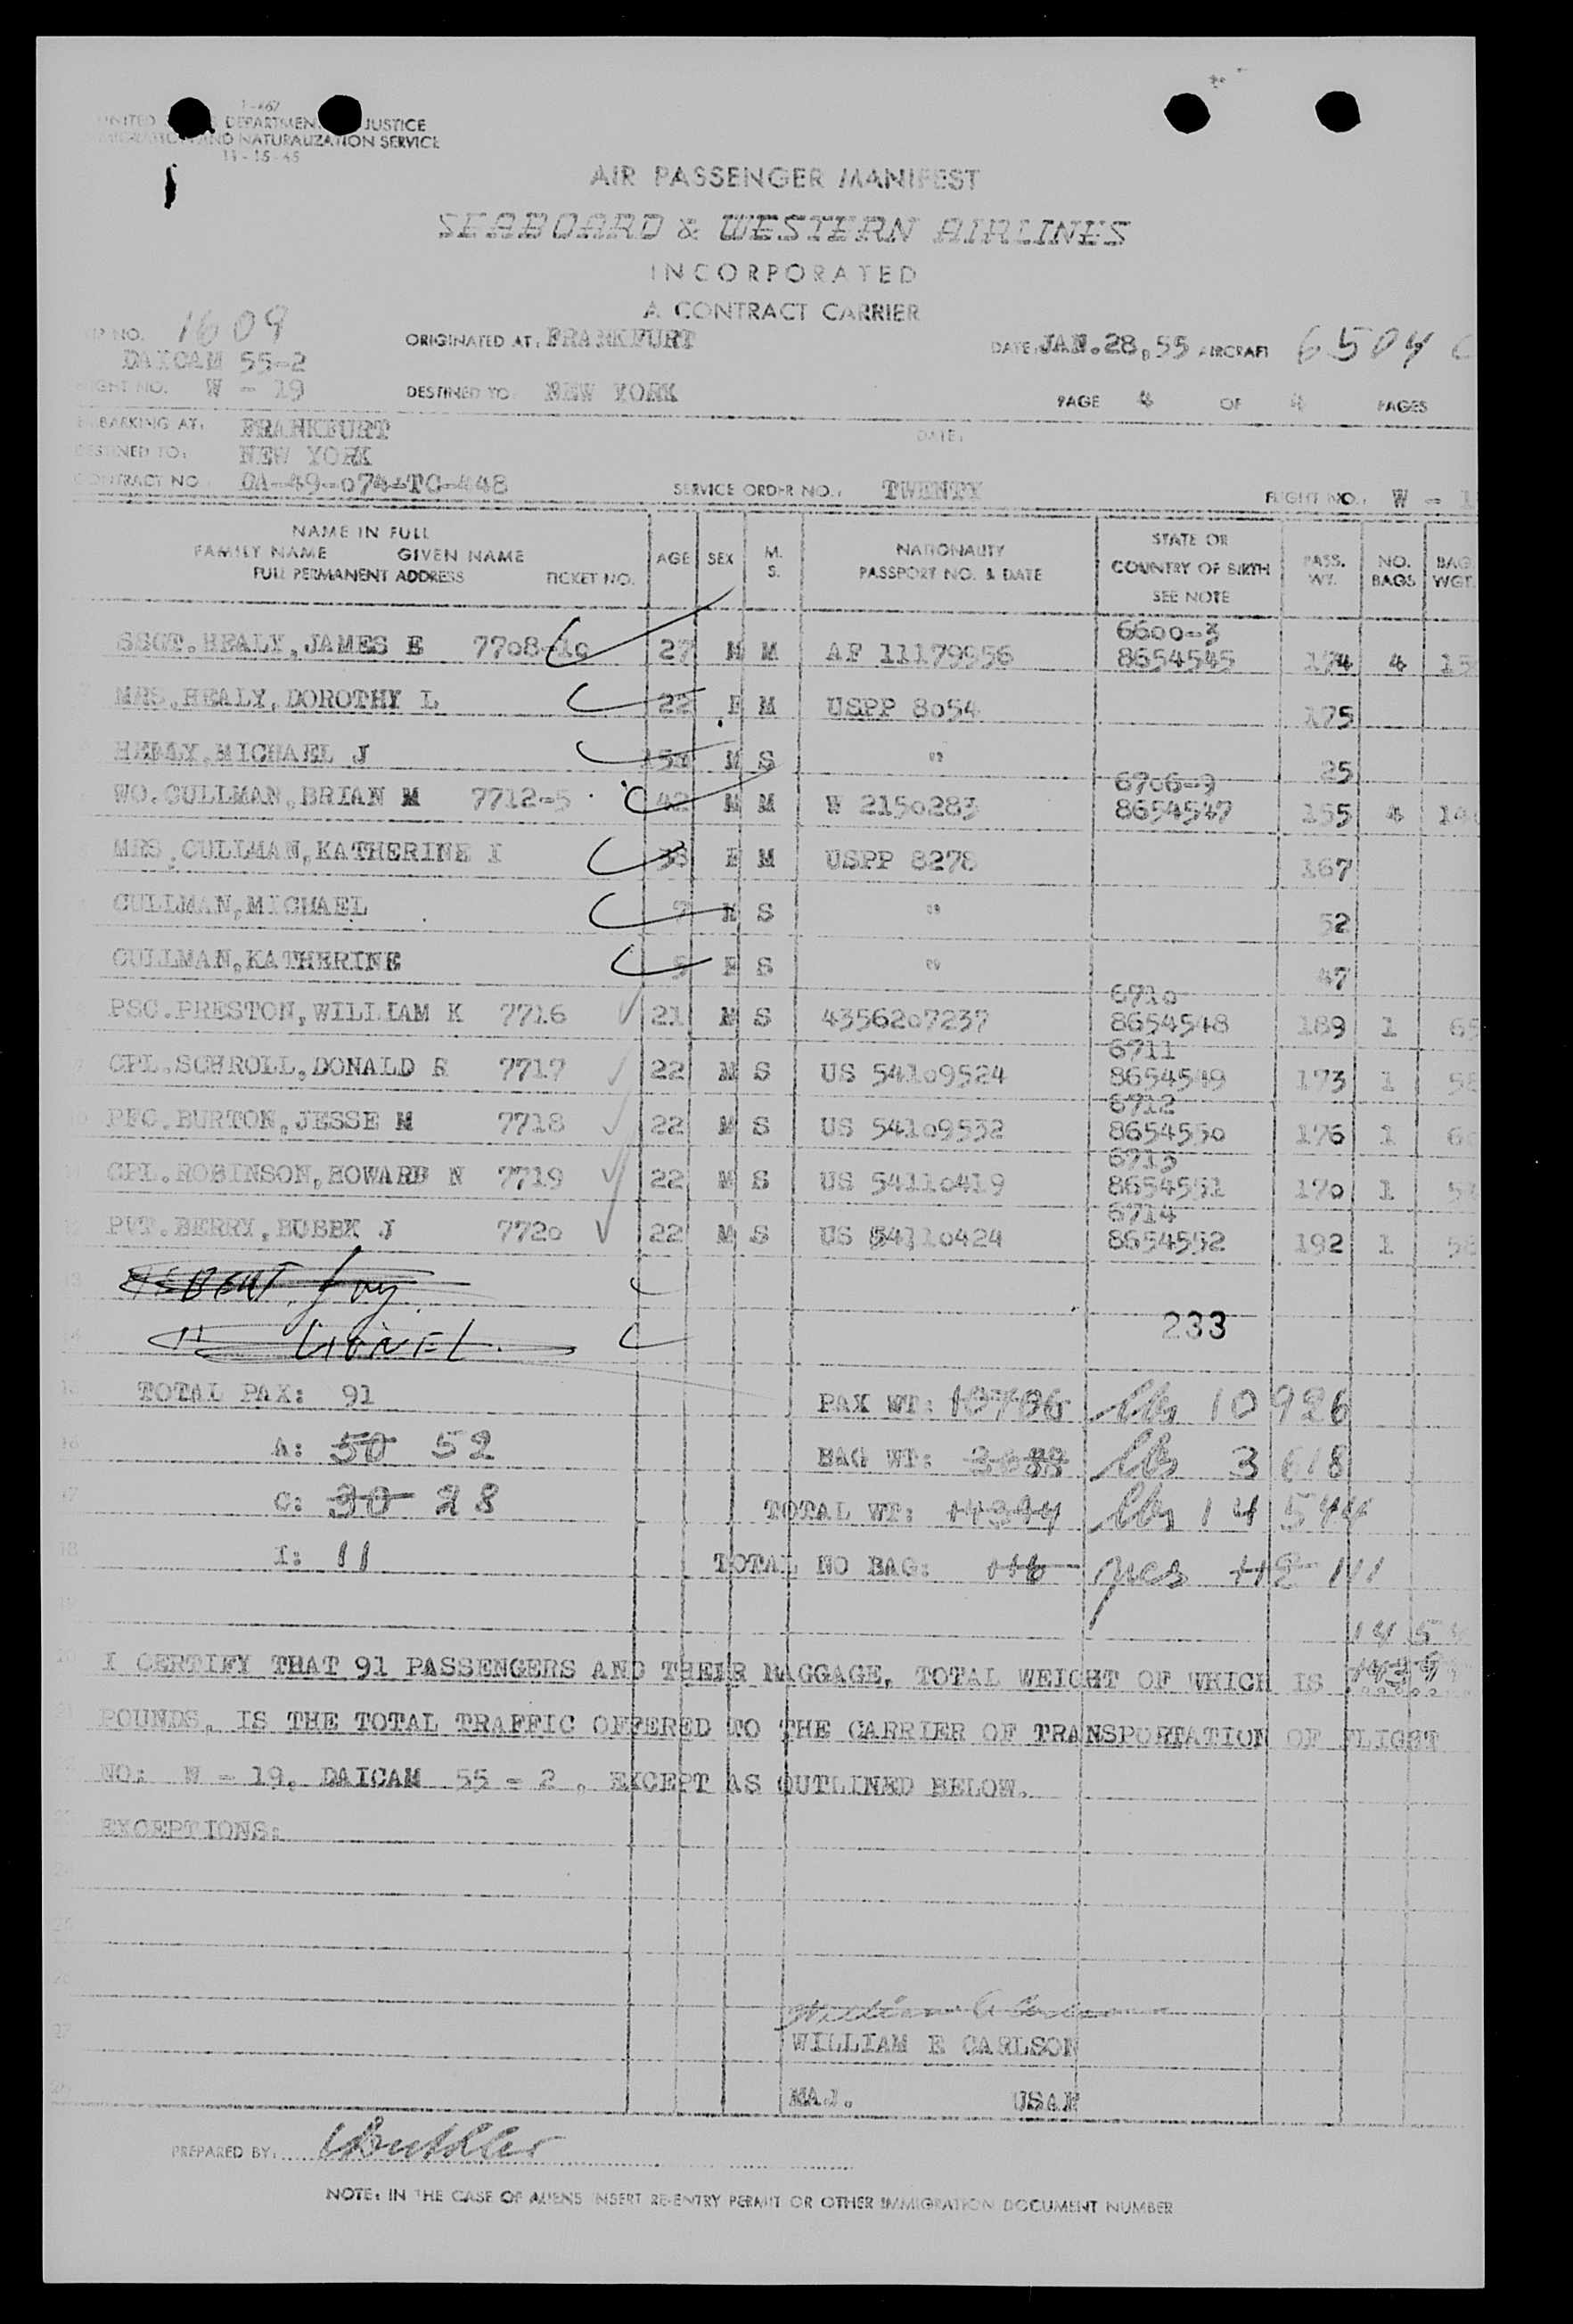 1-467
UNITED DEPARTMENT JUSTICE
AND NATURALIZATION SERVICE
11-15-45
AIR PASSENGER MANIFEST
SEABOARD & WESTERN AIRLINES
INCORPORATED
A CONTRACT CARRIER
NO. 1609 ORIGINATED AT: FRANKFURT DATE: JAN.28,55 AIRCRAFT 6504 C
DAICAM 55-2
NO. W - 19 DESTINED TO: NEW YORK PAGE 4 OF 4 PAGES
BARKING AT: FRANKFURT DATE:
DESTINED TO: NEW YORK
CONTRACT NO. DA-49-074-TC-448 SERVICE ORDER NO.: TWENTY FLIGHT NO.: W - 1
NAME IN FULL STATE OR
FAMILY NAME GIVEN NAME AGE SEX M. S. NATIONALITY COUNTRY OF BIRTH PASS. WT. NO. BAGS BAG WGT.
FULL PERMANENT ADDRESS TICKET NO. PASSPORT NO. & DATE SEE NOTE
6600-3
SSGT.HEALY,JAMES E 7708-10 27 M M AF 11179956 8654545 174 4 15
MRS.HEALY,DOROTHY L 22 F M USPP 8054 175
HEALY,MICHAEL J M S " 25
6706-9
WO.CULLMAN,BRIAN M 7712-5 42 M M W 2150283 8654547 155 4 14
MRS.CULLMAN,KATHERINE I 38 F M USPP 8278 167
CULLMAN,MICHAEL 7 M S " 52
CULLMAN,KATHERINE 5 F S " 47
6710
PSC.PRESTON,WILLIAM K 7716 21 M S 4356207237 8654548 189 1 65
6711
CPL.SCHROLL,DONALD R 7717 22 M S US 54109524 8654549 173 1 58
6712
PFC.BURTON,JESSE M 7718 22 M S US 54109532 8654550 176 1 6
6713
CPL.ROBINSON,HOWARD N 7719 22 M S US 54110419 8654551 170 1 5
6714
PVT.BERRY,BUBBX J 7720 22 M S US 54110424 8654552 192 1 58
233
" LIONEL
TOTAL PAX: 91 PAX WT: 10786 lbs 10 926
A: 50 52 BAG WT: lbs 3 618
C: 30 28 TOTAL WT: 14344 lbs 14 544
I: 11 TOTAL NO BAG: 116 pcs 112 111
14 54
I CERTIFY THAT 91 PASSENGERS AND THEIR BAGGAGE, TOTAL WEIGHT OF WHICH IS
POUNDS, IS THE TOTAL TRAFFIC OFFERED TO THE CARRIER OF TRANSPORTATION OF FLIGHT
NO: W - 19, DAICAM 55 - 2 , EXCEPT AS OUTLINED BELOW.
EXCEPTIONS:
WILLIAM E CARLSON
MAJ. USAF
PREPARED BY:
NOTE: IN THE CASE OF ALIENS INSERT RE-ENTRY PERMIT OR OTHER IMMIGRATION DOCUMENT NUMBER